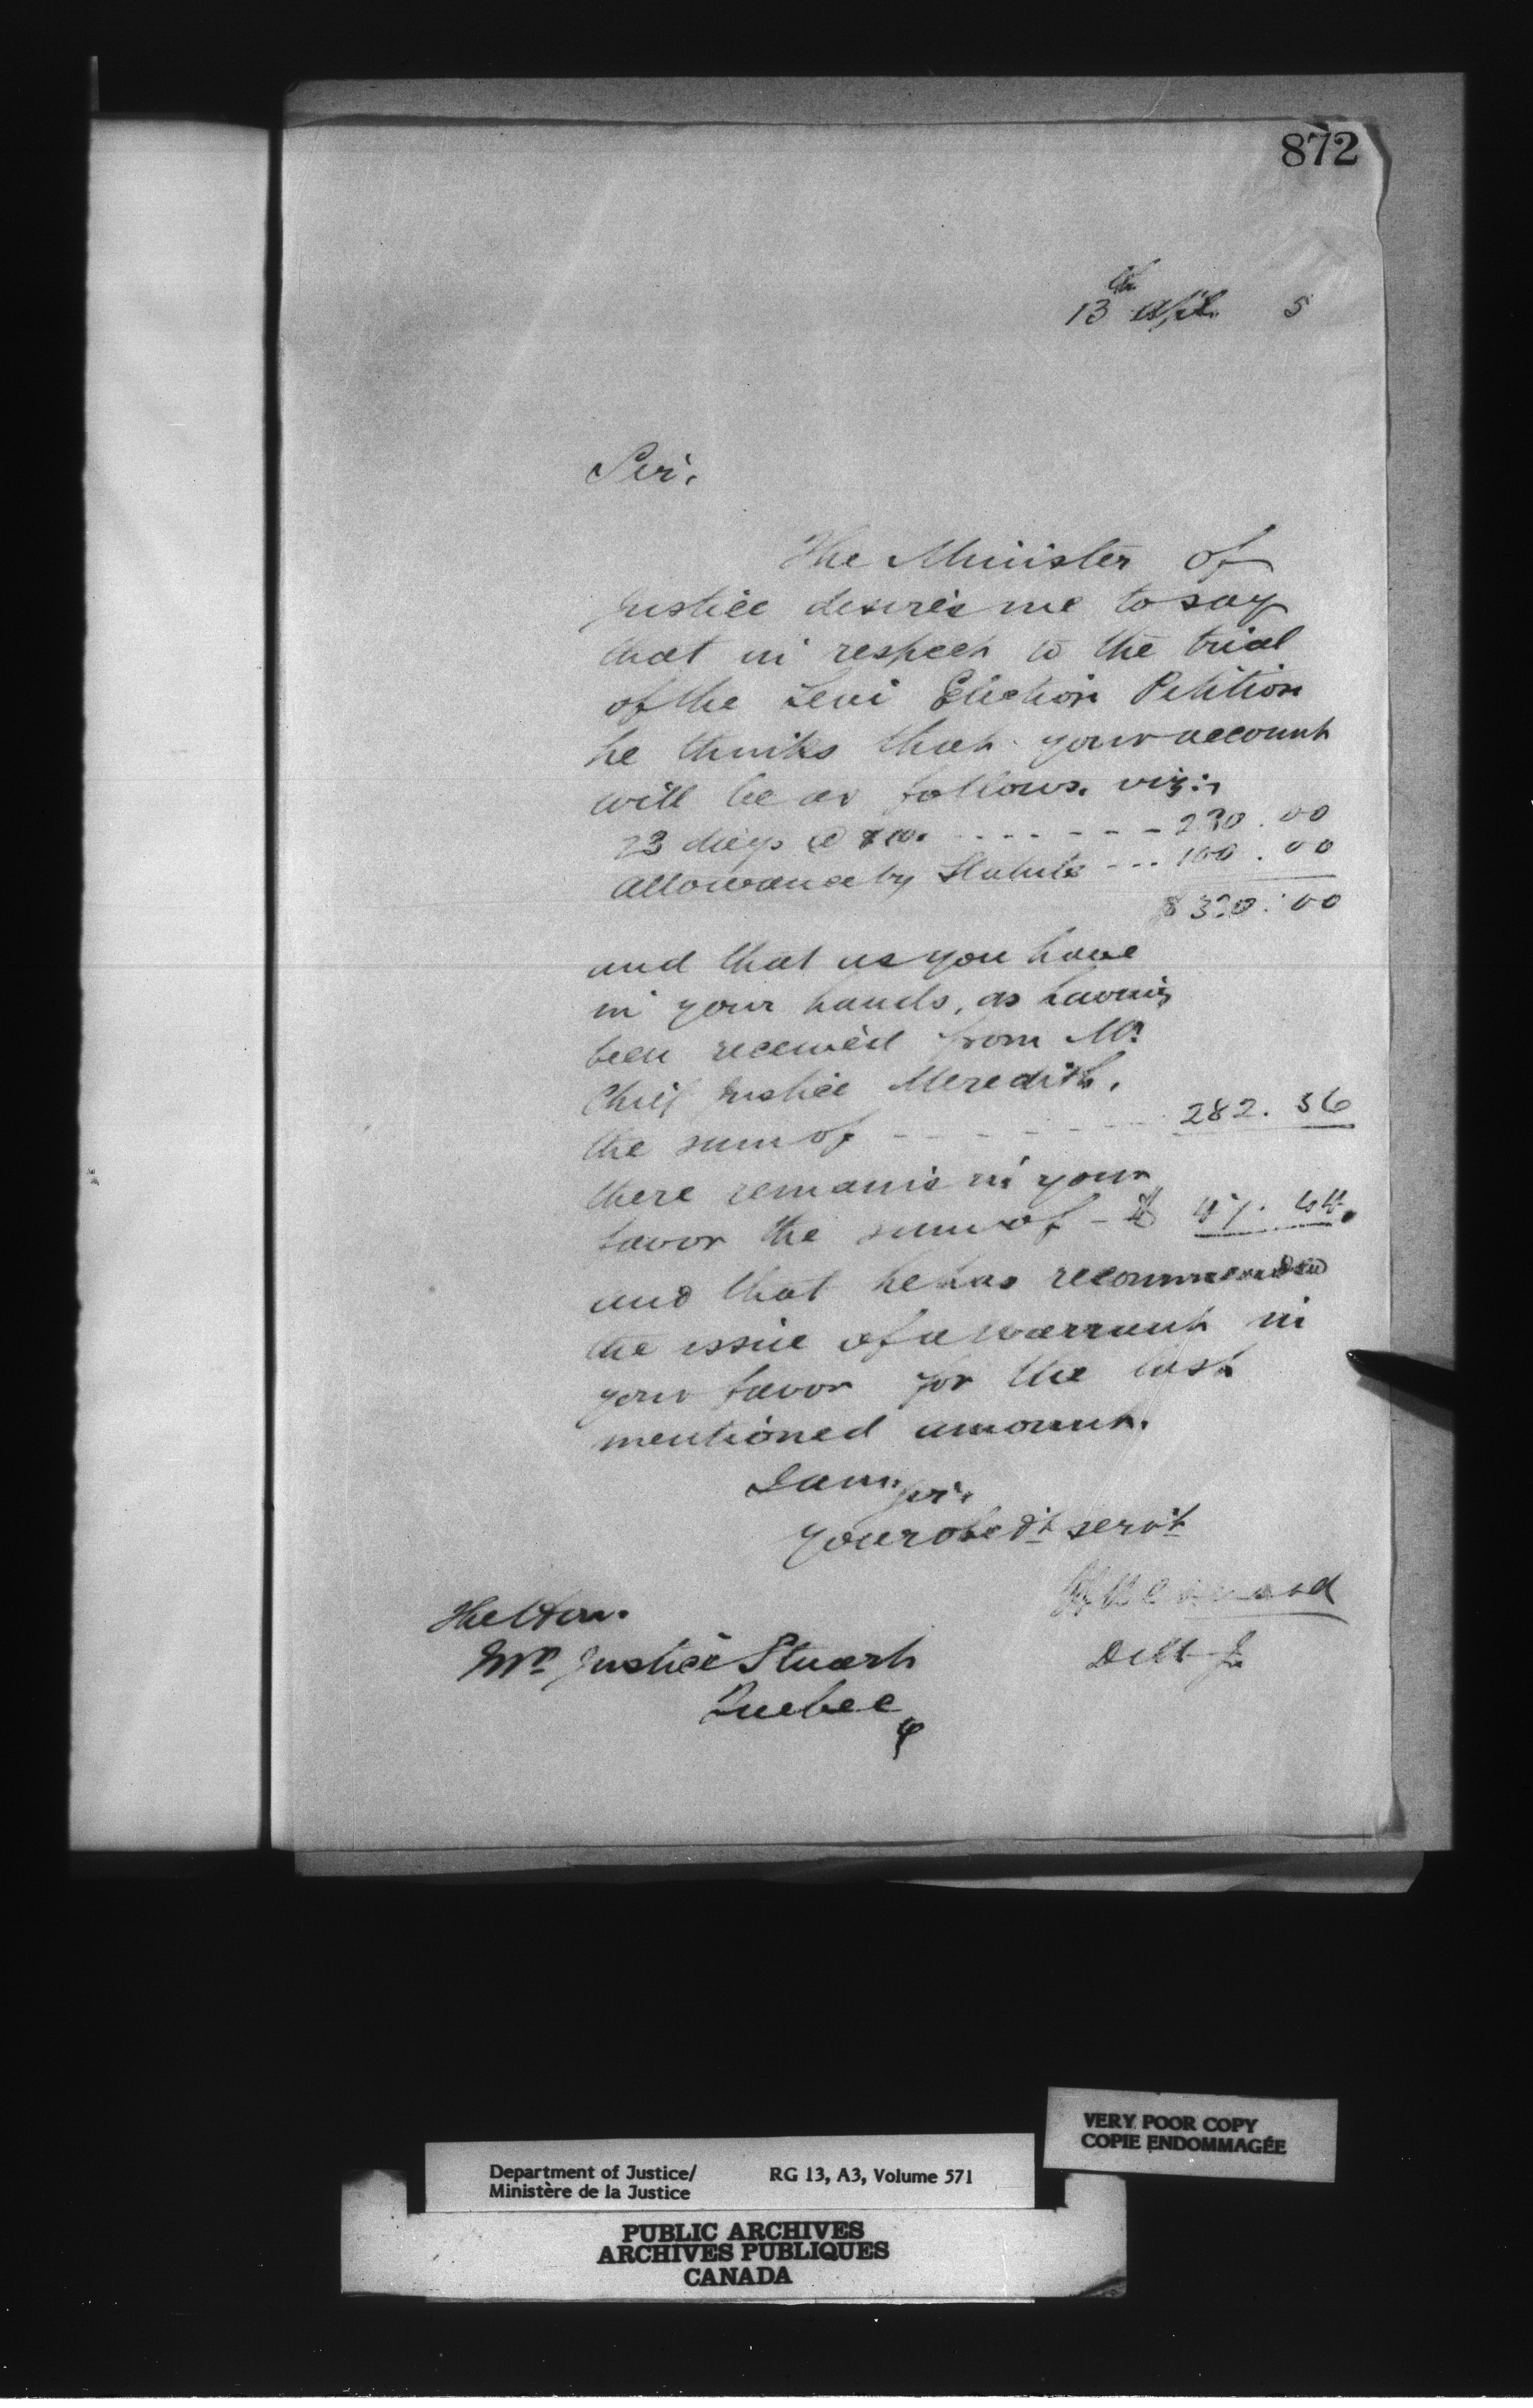 872
13th Apl. 5
Sir,
The Minister of
Justice desires me to say
that in respect to the trial
of the Levi Election Petition
he thinks that your account
will be as follows. viz:
23 days @ $10. - - - - - - 230.00
allowance by Statute --- 100.00
$ 330.00
and that as you have
in your hands, as having
been received from Mr.
Chief Justice Meredith,
the sum of - - - - - - 282.56
there remains in your
favor the sum of - $ 47.44.
and that he has recommended
the issue of a warrant in
your favor for the last
mentioned amount.
I am, Sir,
your obedt servt
The Hon.
Mr. Justice Stuart
Quebec
VERY POOR COPY
COPIE ENDOMMAGÉE
Department of Justice/ RG 13, A3, Volume 571
Ministère de la Justice
PUBLIC ARCHIVES
ARCHIVES PUBLIQUES
CANADA